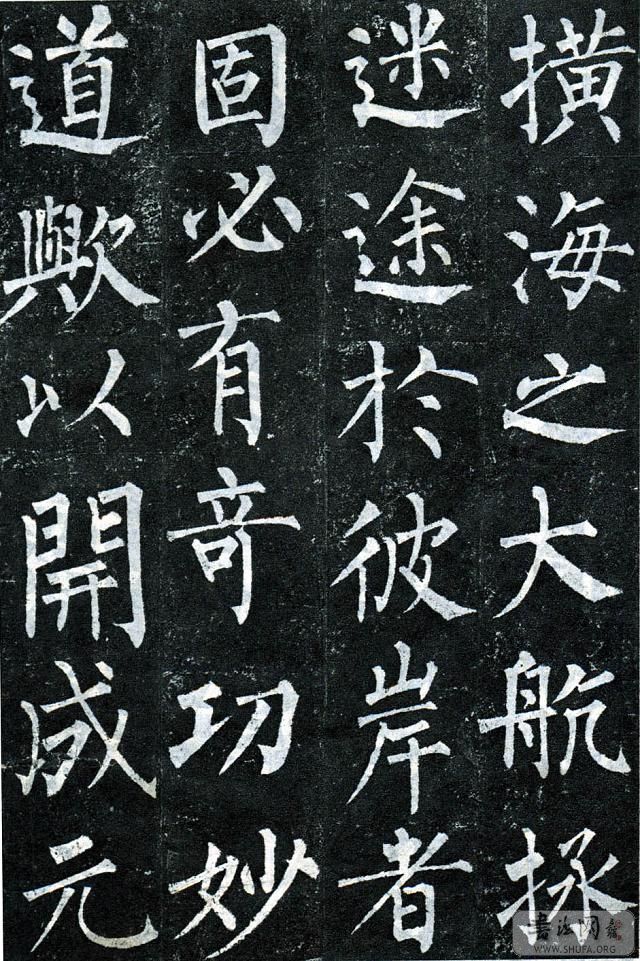 横海之大航拯
迷途於彼岸者
固必有奇功妙
道歟以開成元
書法网
WWW.SHUFA.ORG